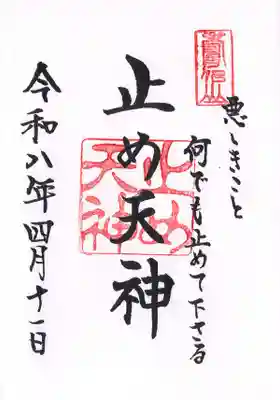 悪しきこと
何でも止めて下さる
止め天神
止め天神
令和八年四月十一日